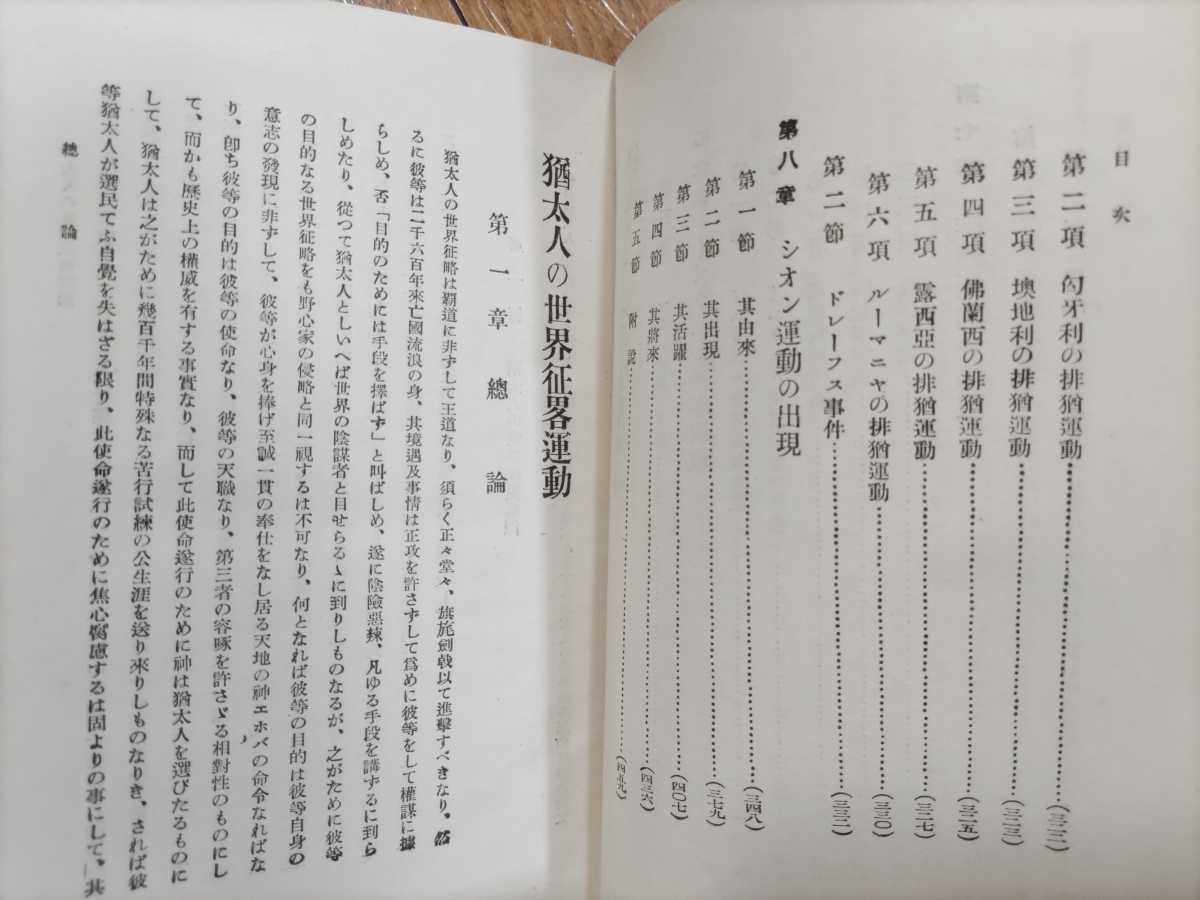 目次
第二項　匈牙利の排猶運動……(三二二)
第三項　墺地利の排猶運動……(三二三)
第四項　佛蘭西の排猶運動……(三二五)
第五項　露西亞の排猶運動……(三二七)
第六項　ルーマニヤの排猶運動……(三三〇)
第二節　ドレーフス事件……(三三二)
第八章　シオン運動の出現
第一節　其由來……(三四八)
第二節　其出現……(三七九)
第三節　其活躍……(四〇七)
第四節　其將來……(四三六)
第五節　附說……(四五九)
猶太人の世界征畧運動
第一章　總論
猶太人の世界征略は覇道に非ずして王道なり、須らく正々堂々、旗旄劍戟以て進擊すべきなり、然
るに彼等は二千六百年來亡國流浪の身、其境遇及事情は正攻を許さずして爲めに彼等をして權謀に據
らしめ、否「目的のためには手段を擇ばず」と叫ばしめ、遂に陰險惡辣、凡ゆる手段を講ずるに到ら
しめたり、從つて猶太人としいへば世界の陰謀者と目せらるゝに到りしものなるが、之がために彼等
の目的なる世界征略をも野心家の侵略と同一視するは不可なり、何となれば彼等の目的は彼等自身の
意志の發現に非ずして、彼等が心身を捧げ至誠一貫の奉仕をなし居る天地の神エホバの命令なればな
り、卽ち彼等の目的は彼等の使命なり、彼等の天職なり、第三者の容啄を許さゞる相對性のものにし
て、而かも歷史上の權威を有する事實なり、而して此使命遂行のために神は猶太人を選びたるものに
して、猶太人は之がために幾百千年間特殊なる苦行試練の公生涯を送り來りしものなりき、されば彼
等猶太人が選民てふ自覺を失はざる限り、此使命遂行のために焦心腐慮するは固よりの事にして、其
總論